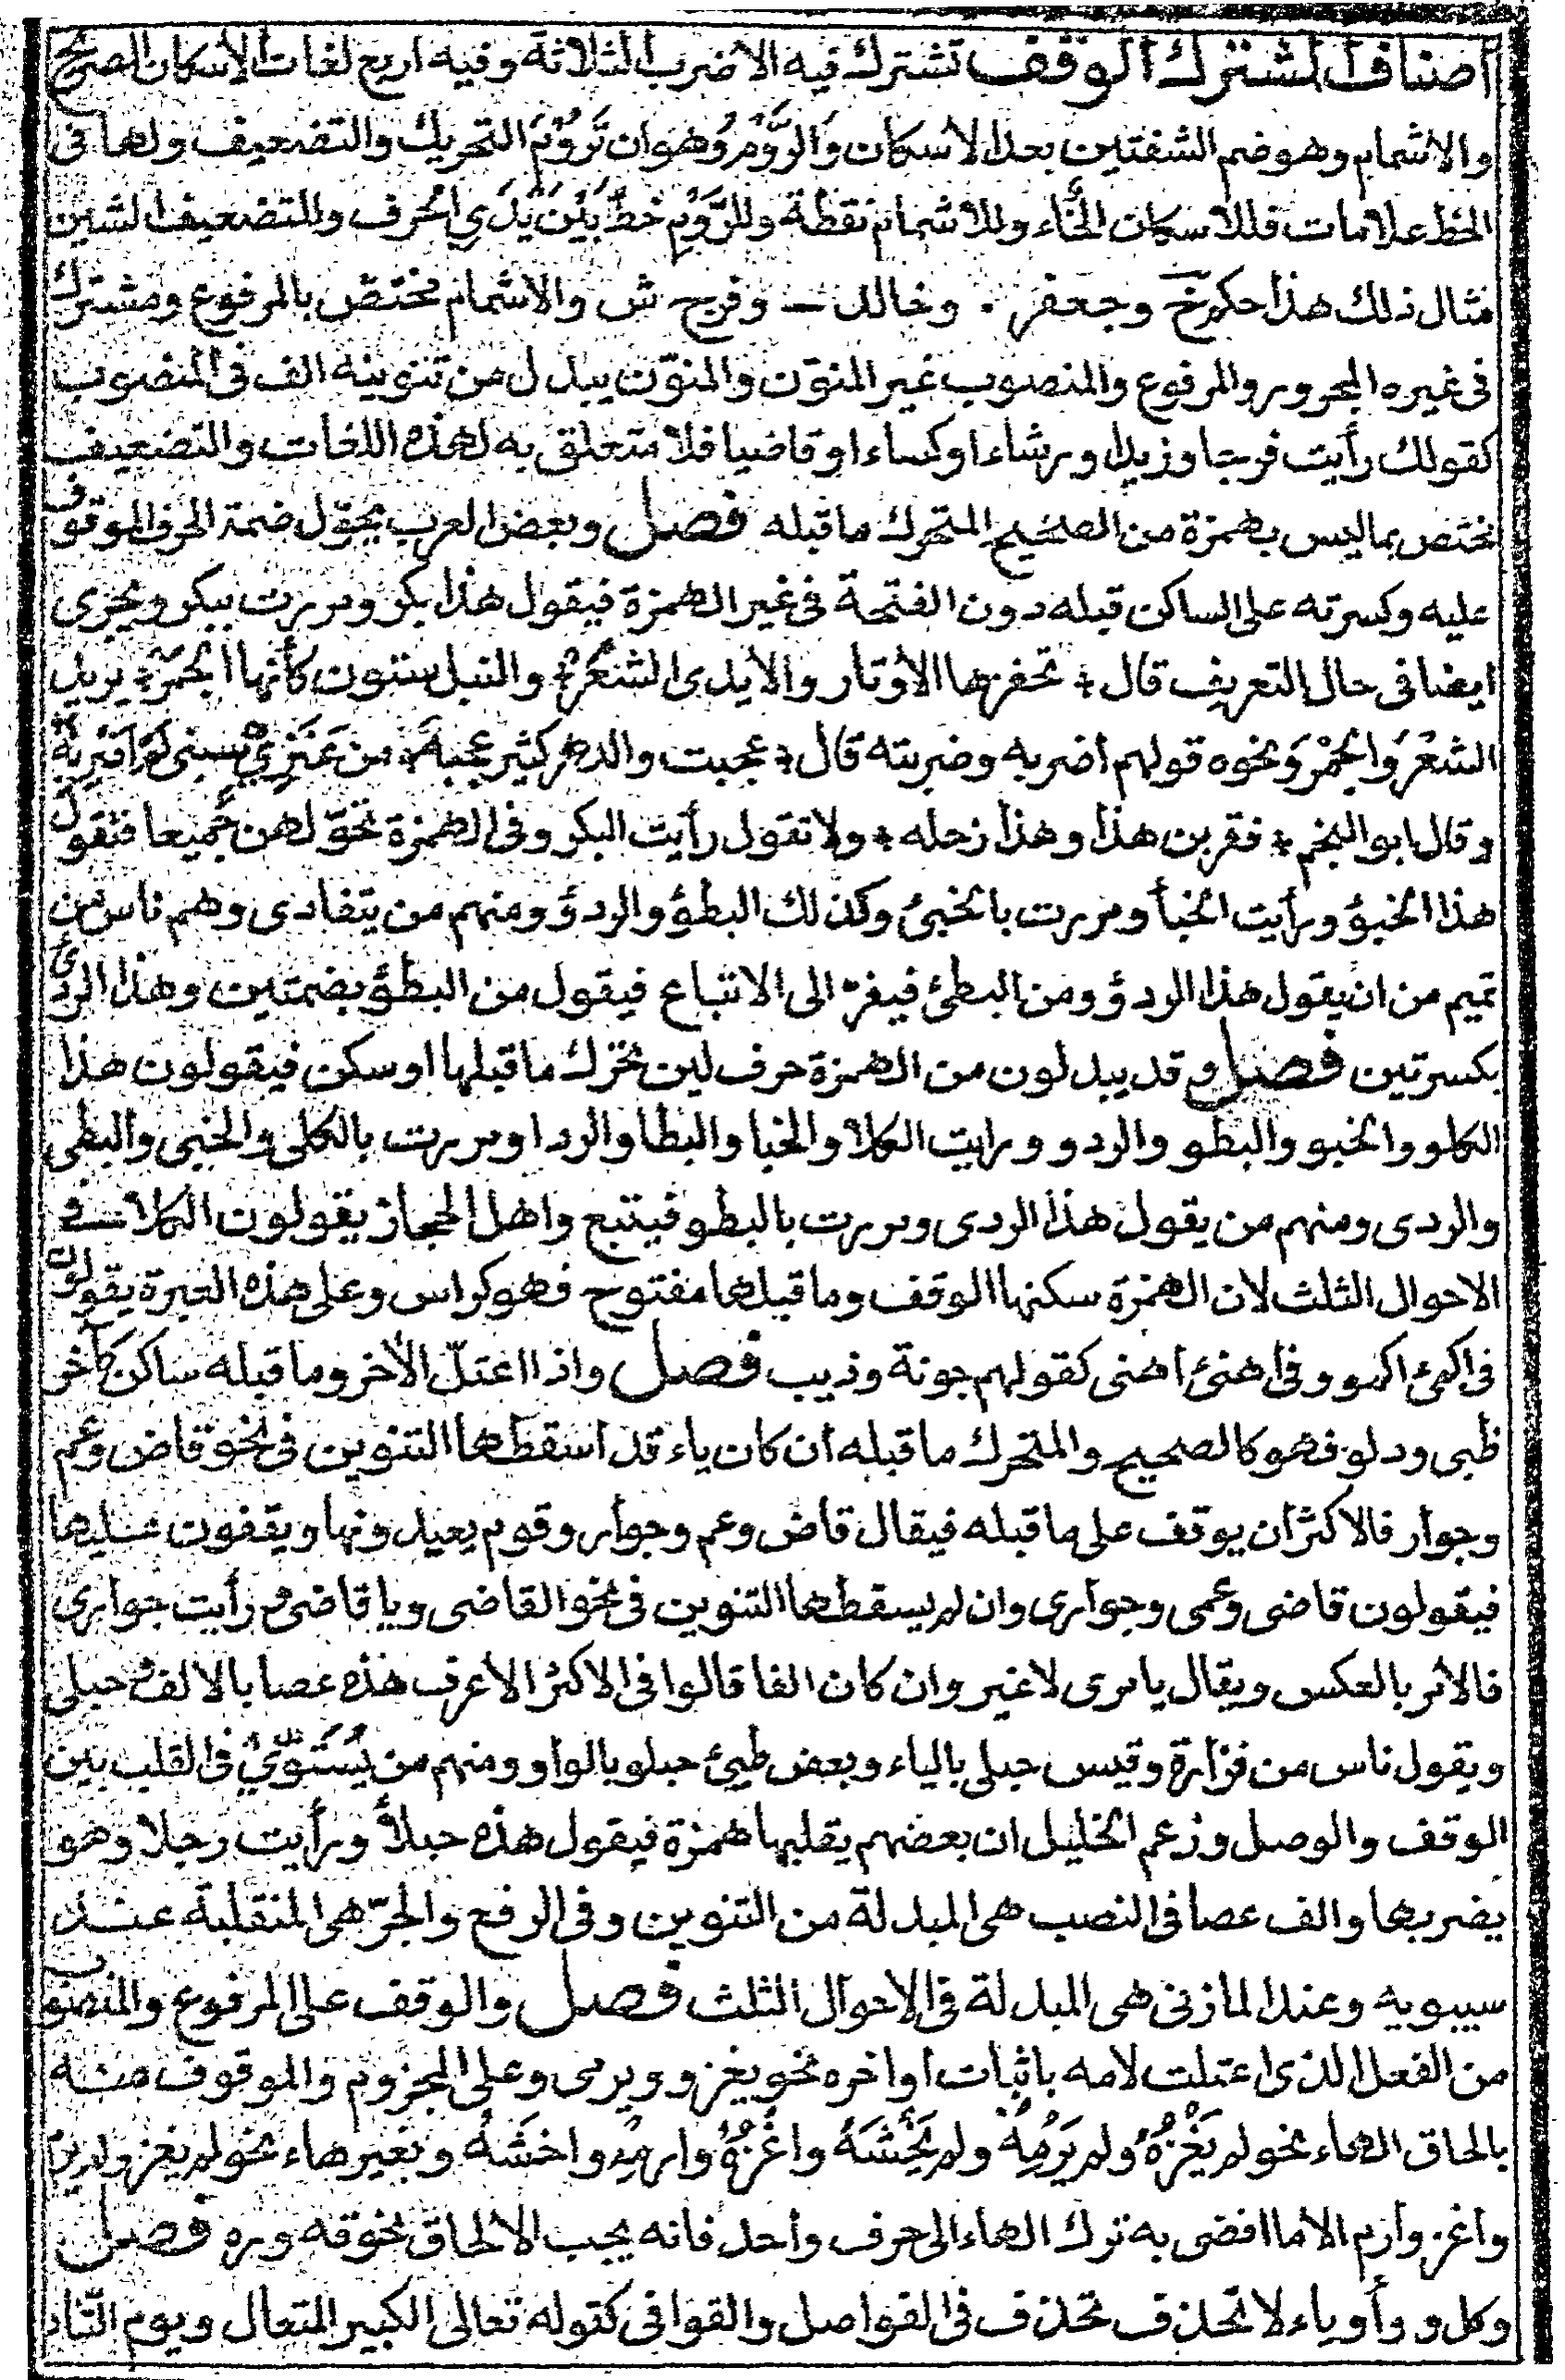 أصناف المشترك الوقف تشترك فيه الاضرب الثلاثة وفيه اربع لغات الأسكان الصريح
والاشمام وهو ضم الشفتين بعد الأسكان والرَّوْم وهو ان تَرُوْمَ التحريك والتضعيف ولها فى
الخط علامات فللاسكان الخاء وللاشمام نقطة وللرَّوْمِ خطٌّ بَيْنَ يَدَيِ الحرف وللتضعيف الشين
مثال ذلك هذا حكم خ وجعفر . وخالد — وفرج ش والاشمام مختص بالمرفوع ومشترك
فى غيره المجرور والمرفوع والمنصوب غير المنوّن والمنوّن يبدل من تنوينه الف فى المنصوب
كقولك رأيت فرجا وزيدا ورشاءا وكساءا وقاضيا فلا متعلق به لهذه اللغات والتضعيف
مختص بما ليس بهمزة من الصحيح المتحرك ما قبله فصل وبعض العرب يحوّل ضمة الحرف الموقوف
عليه وكسرته على الساكن قبله دون الفتحة فى غير الهمزة فيقول هذا بكر ومررت ببكر ويجرى
ايضا فى حال التعريف قال تحفزها الأوتار والأيدى الشعُرْ والنبل ستون كأنها الجمرْ يريد
الشعْرُ والجمْرُ ونحوه قولهم أضربه وضربته قال عجبت والدهر كثير عجبه من عَنَزِيٍّ سبنى لم اضربه
وقال ابو النجم فقربن هذا وهذا زحله ولا تقول رأيت البكر وفى الهمزة تحوّلهن جميعا فتقول
هذا الخبؤ ورأيت الخبأ ومررت بالخبئ وكذلك البطؤ والردؤ ومنهم من يتفادى وهم ناس من
تميم من ان يقول هذا الردؤ ومن البطئ فيفرّ الى الاتباع فيقول من البطؤ بضمتين وهذا الردئ
بكسرتين فصل وقد يبدلون من الهمزة حرف لين تحرّك ما قبلها او سكن فيقولون هذا
الكلو والخبو والبطو والردو ورايت الكلا والخبا والبطا والردا ومررت بالكلى والخبى والبطى
والردى ومنهم من يقول هذا الردى ومررت بالبطو فيتبع واهل الحجاز يقولون الكلا فى
الاحوال الثلث لان الهمزة سكنها الوقف وما قبلها مفتوح فهو كراس وعلى هذه العبرة يقولون
فى اكمئ اكمو وفى اهنئ اهنى كقولهم جونة وذيب فصل واذا اعتلّ الأخر وما قبله ساكن كأخر
ظبى ودلو فهو كالصحيح والمتحرك ما قبله ان كان ياء قد اسقطها التنوين فى نحو قاض وعم
وجوار فالاكثر ان يوقف على ما قبله فيقال قاض وعم وجوار وقوم يعيدونها ويقفون عليها
فيقولون قاضى وعمى وجوارى وان لم يسقطها التنوين فى نحو القاضى ويا قاضى ورأيت جوارى
فالأمر بالعكس ويقال يا مرى لا غير وان كان الفا قالوا فى الاكثر الأعرف هذه عصا بالالف وحبلى
ويقول ناس من فزارة وقيس حبلى بالياء وبعض طيئ حبلو بالواو ومنهم من يُسَوّيْ فى القلب بين
الوقف والوصل وزعم الخليل ان بعضهم يقلبها همزة فيقول هذه حبلأ ورأيت رجلأ وهو
يضربها والف عصا فى النصب هى المبدلة من التنوين وفى الرفع والجرّ هى المنقلبة عند
سيبويه وعند المازنى هى المبدلة فى الاحوال الثلث فصل والوقف على المرفوع والمنصوب
من الفعل الذى اعتلت لامه باثبات أواخره نحو يغزو ويرمى وعلى المجزوم والموقوف منه
بالحاق الهاء نحو لم يَغْزُهْ ولم يَرْمِهْ ولم يَخْشَهْ واغْزُهْ وارمِهْ واخشَهْ وبغير هاء نحو لم يغز ولم يرم
واغز وارم الا ما افضى به ترك الهاء الى حرف واحد فانه يجب الالحاق نحو قه وره فصل
وكل واو وياء لا تحذف تحذف فى الفواصل والقوافى كقوله تعالى الكبير المتعال ويوم التّناد